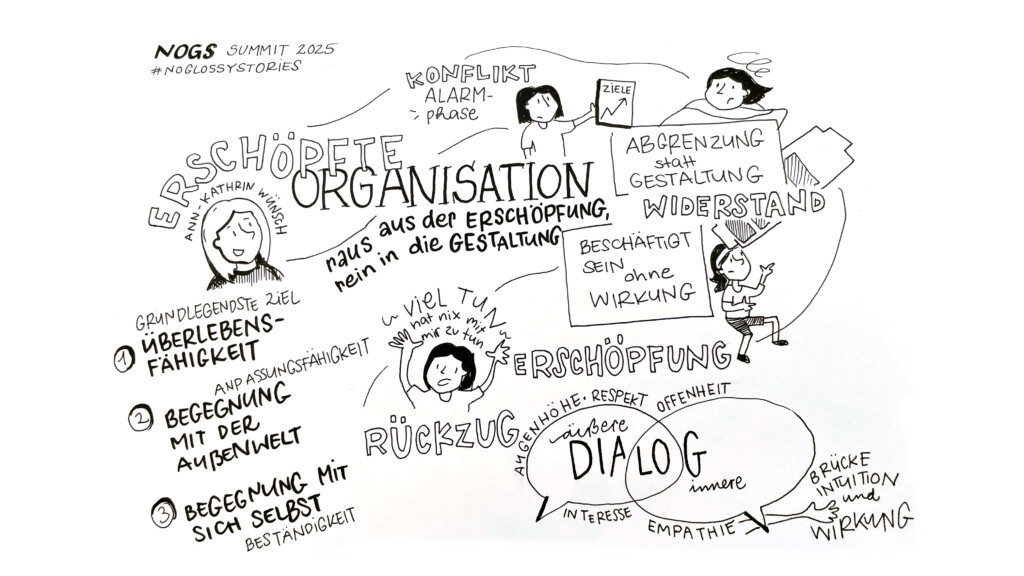 NOGS SUMMIT 2025
#NOGLOSSYSTORIES
ERSCHÖPFTE
ORGANISATION
raus aus der ERSCHÖPFUNG,
rein in die GESTALTUNG
ANN-KATHRIN WÜNSCH
KONFLIKT
ALARM-
phase
ZIELE
ABGRENZUNG
statt
GESTALTUNG
WIDERSTAND
BESCHÄFTIGT
SEIN ohne
WIRKUNG
ERSCHÖPFUNG
~ VIEL TUN ~
hat nix mit
mir zu tun
RÜCKZUG
GRUNDLEGENDSTE ZIEL
1 ÜBERLEBENS-
FÄHIGKEIT
ANPASSUNGSFÄHIGKEIT
2 BEGEGNUNG
MIT DER
AUßENWELT
3 BEGEGNUNG MIT
SICH SELBST
BESTÄNDIGKEIT
AUGENHÖHE · RESPEKT OFFENHEIT
äußere
DIALOG
innere
INTERESSE
EMPATHIE
BRÜCKE
INTUITION
und
WIRKUNG